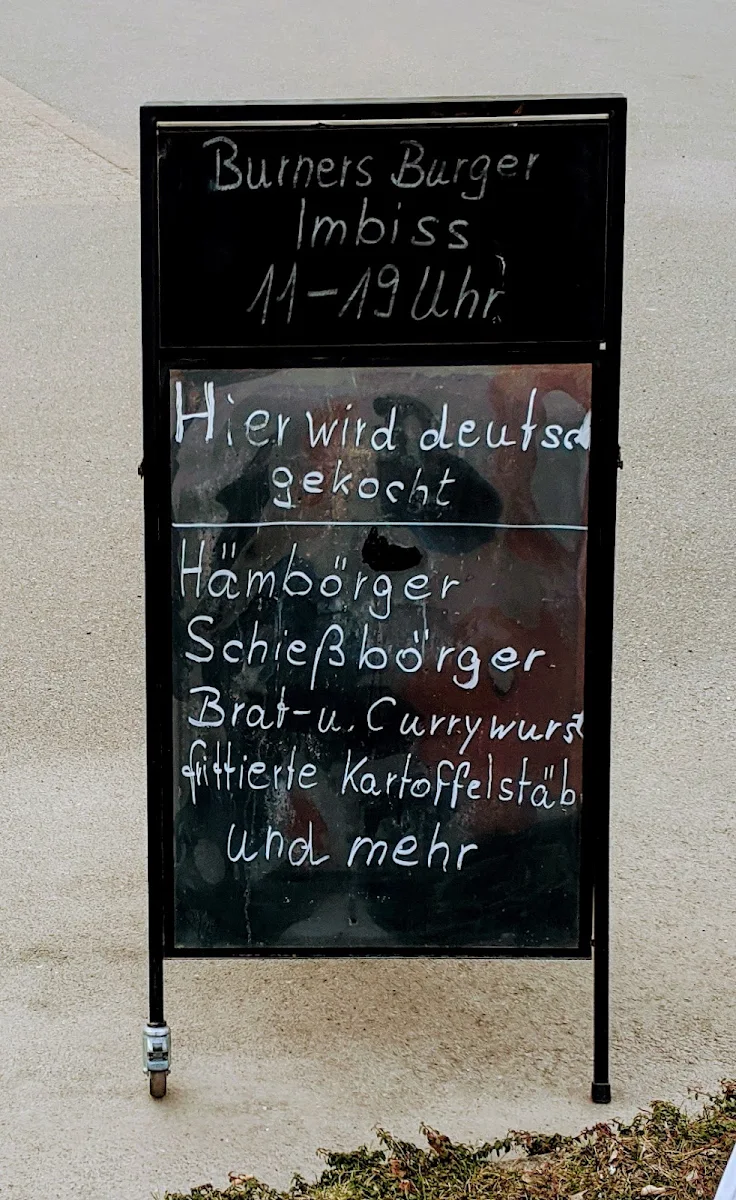 Burners Burger
Imbiss
11-19 Uhr
Hier wird deutsc
gekocht
Hämbörger
Schießbörger
Brat-u. Currywurst
frittierte Kartoffelstäb
und mehr